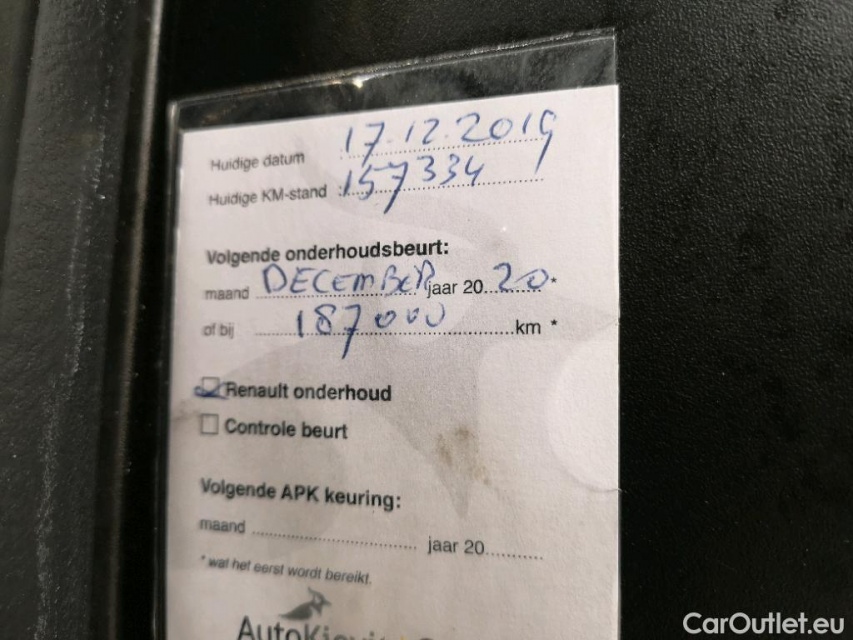 Huidige datum 17.12.2019
Huidige KM-stand : 157334
Volgende onderhoudsbeurt:
maand DECEMBER jaar 20 20 *
of bij 187000 km *
Renault onderhoud
Controle beurt
Volgende APK keuring:
maand jaar 20
* wat het eerst wordt bereikt.
CarOutlet.eu